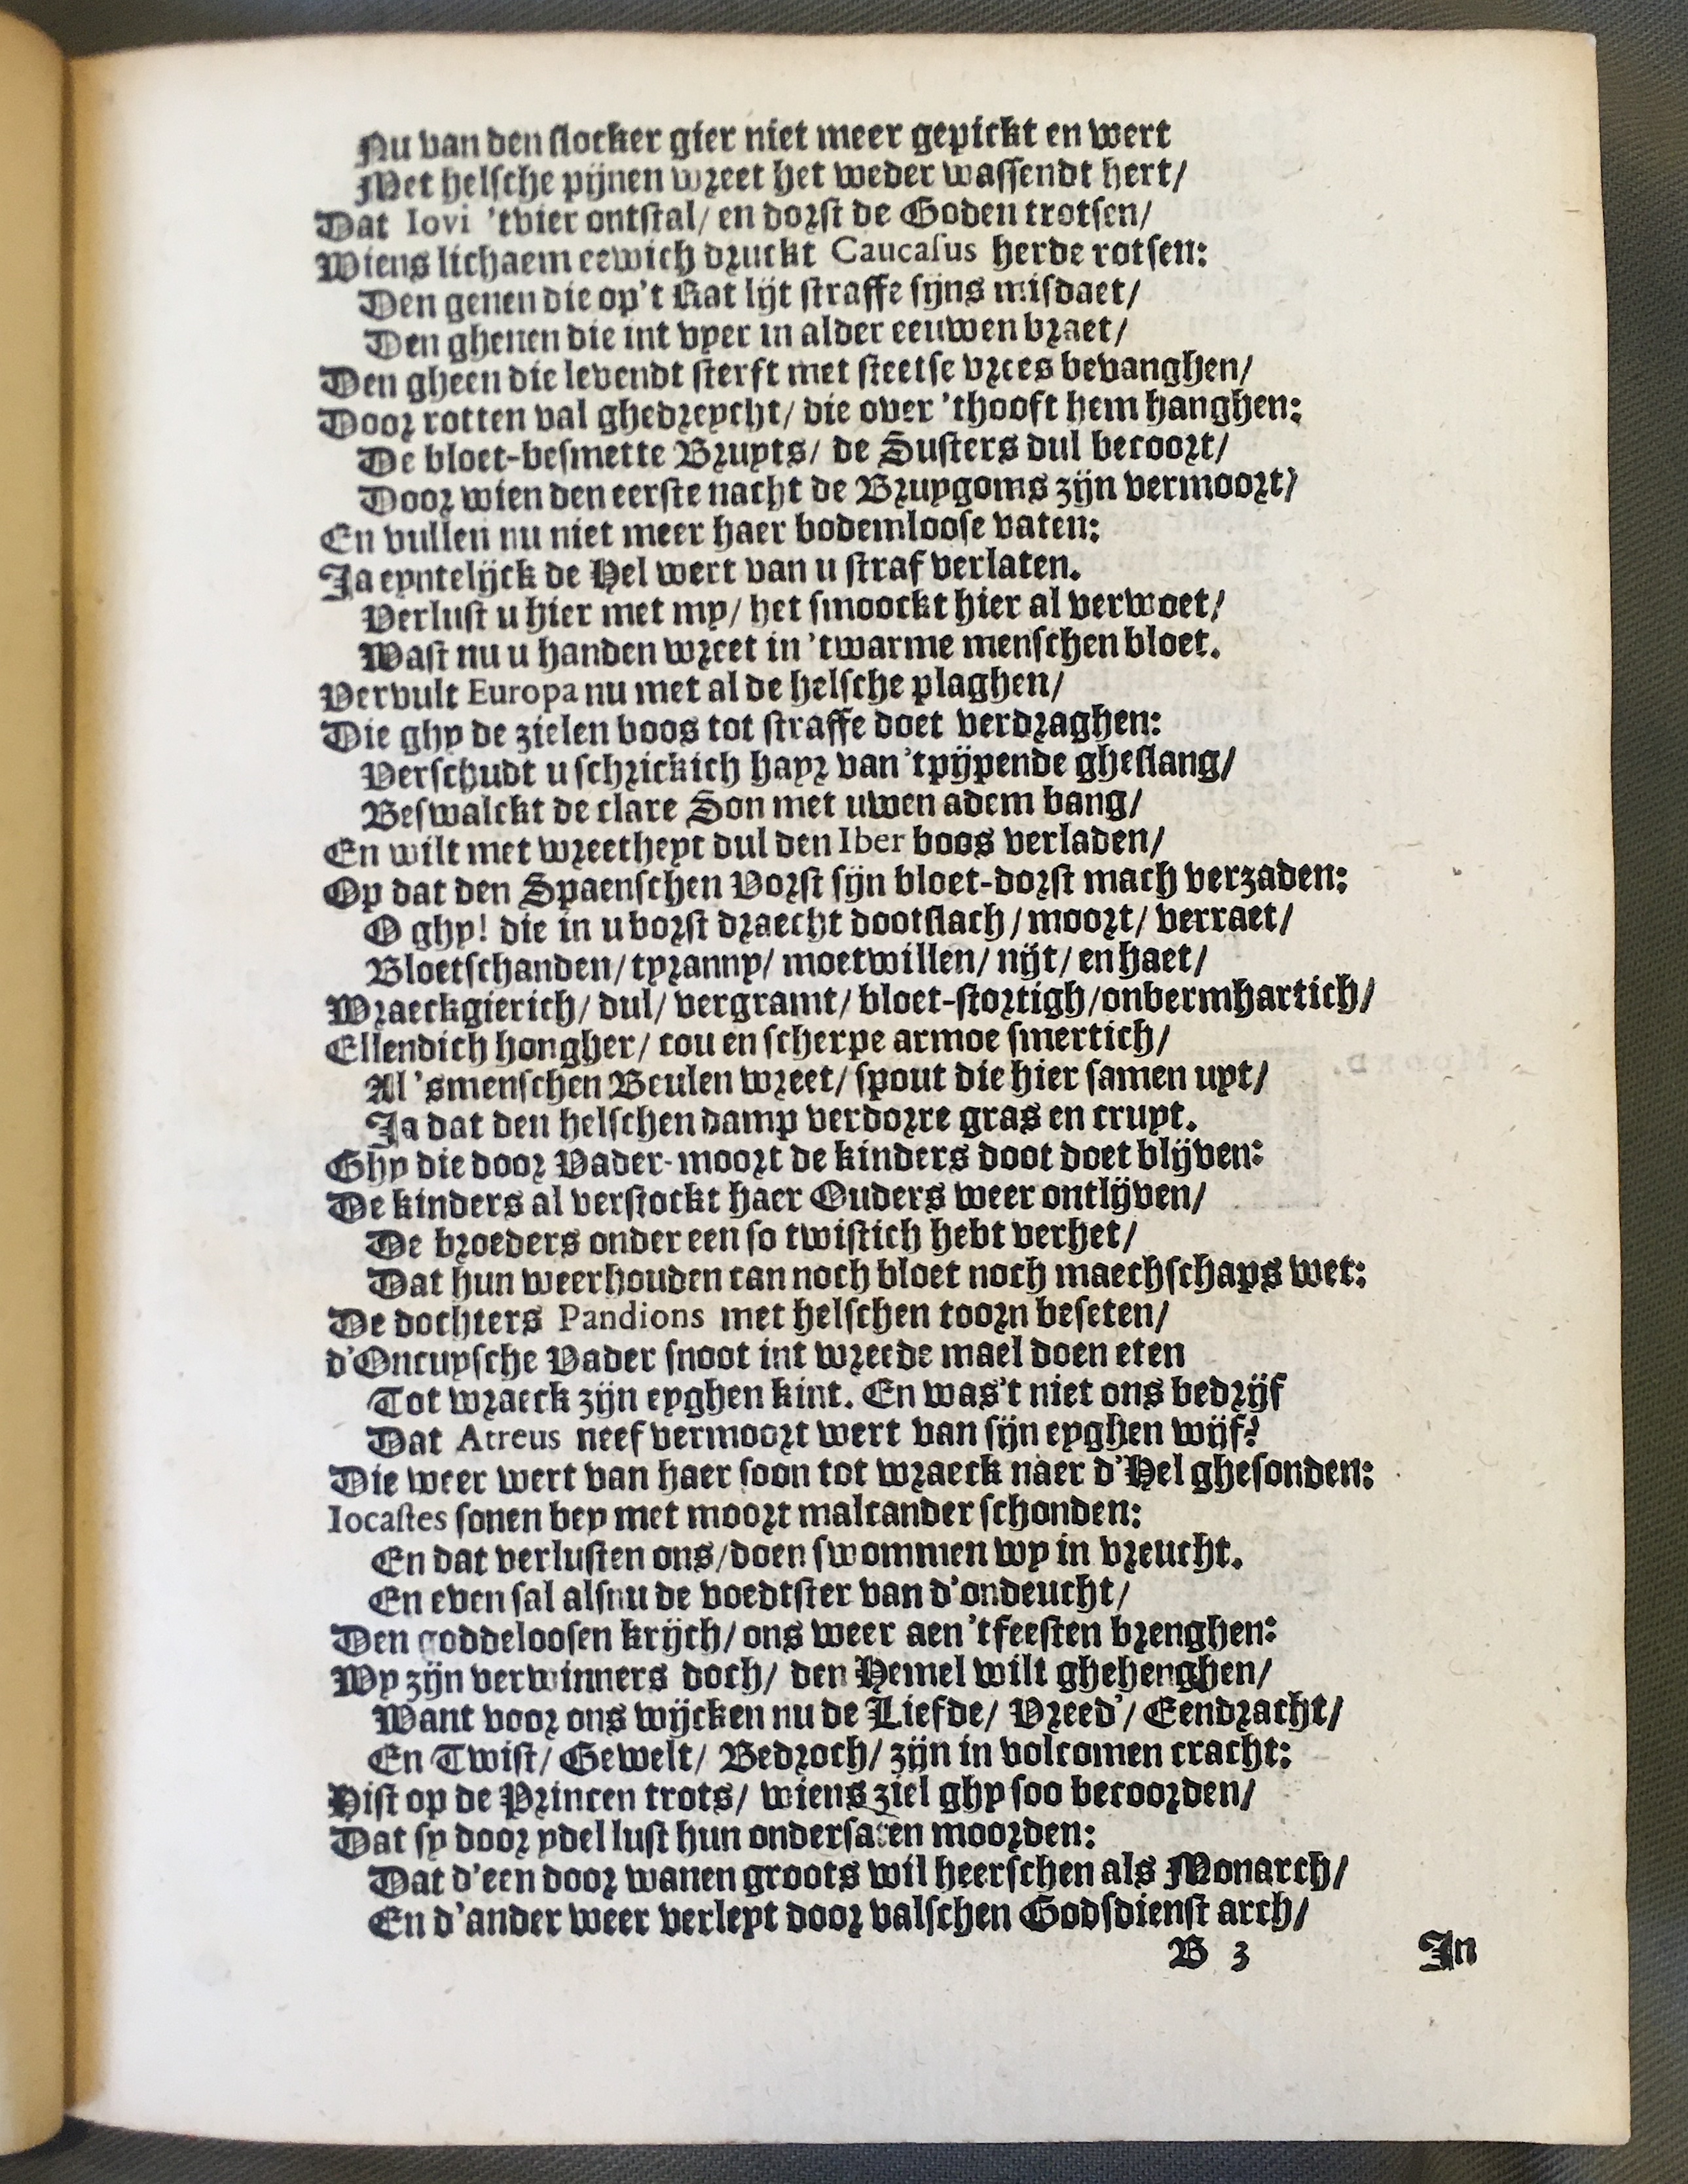 Nu van den slocker gier niet meer gepickt en wert
Met helsche pijnen wreet het weder wassendt hert/
Dat Iovi 'tvier ontstal/ en dorst de Goden trotsen/
Wiens lichaem eewich druckt Caucasus herde rotsen:
Den genen die op't Rat lijt straffe sijns misdaet/
Den ghenen die int vyer in alder eeuwen braet/
Den gheen die levendt sterft met steetse vrees bevanghen/
Door rotten val ghedreycht/ die over 'thooft hem hanghen:
De bloet-besmette Bruyts/ de Susters dul becoort/
Door wien den eerste nacht de Bruygoms zijn vermoort/
En vullen nu niet meer haer bodemloose vaten:
Ja eyntelijck de Hel wert van u straf verlaten.
Verlust u hier met my/ het smoockt hier al verwoet/
Wast nu u handen wreet in 'twarme menschen bloet.
Vervult Europa nu met al de helsche plaghen/
Die ghy de zielen boos tot straffe doet verdraghen:
Verschudt u schrickich hayr van 'tpijpende gheslang/
Beswalckt de clare Son met uwen adem bang/
En wilt met wreetheyt dul den Iber boos verladen/
Op dat den Spaenschen Vorst sijn bloet-dorst mach verzaden:
O ghy! die in u borst draecht dootslach/ moort/ verraet/
Bloetschanden/ tyranny/ moetwillen/ nijt/ en haet/
Wraeckgierich/ dul/ vergramt/ bloet-stortigh/onbermhartich/
Ellendich hongher/ cou en scherpe armoe smertich/
Al 'smenschen Beulen wreet/ spout die hier samen uyt/
Ja dat den helschen damp verdorre gras en cruyt.
Ghy die door Vader-moort de kinders doot doet blijven:
De kinders al verstockt haer Ouders weer ontlijven/
De broeders onder een so twistich hebt verhet/
Dat hun weerhouden can noch bloet noch maechschaps wet:
De dochters Pandions met helschen toorn beseten/
d'Oncuysche Vader snoot int wreede mael doen eten
Tot wraeck zijn eyghen kint. En was't niet ons bedrijf
Dat Atreus neef vermoort wert van sijn eyghen wijf?
Die weer wert van haer soon tot wraeck naer d'Hel ghesonden:
Iocastes sonen bey met moort malcander schonden:
En dat verlusten ons/doen swommen wy in vreucht.
En even sal alsnu de voedtster van d'ondeucht/
Den goddeloosen krijch/ ons weer aen 'tfeesten brenghen:
Wy zijn verwinners doch/ den Hemel wilt ghehenghen/
Want voor ons wijcken nu de Liefde/ Vreed'/ Eendracht/
En Twist/ Gewelt/ Bedroch/ zijn in volcomen cracht:
Hist op de Princen trots/ wiens ziel ghy soo becoorden/
Dat sy door ydel lust hun ondersaten moorden:
Dat d'een door wanen groots wil heerschen als Monarch/
En d'ander weer verleyt door valschen Godsdienst arch/
B 3 In